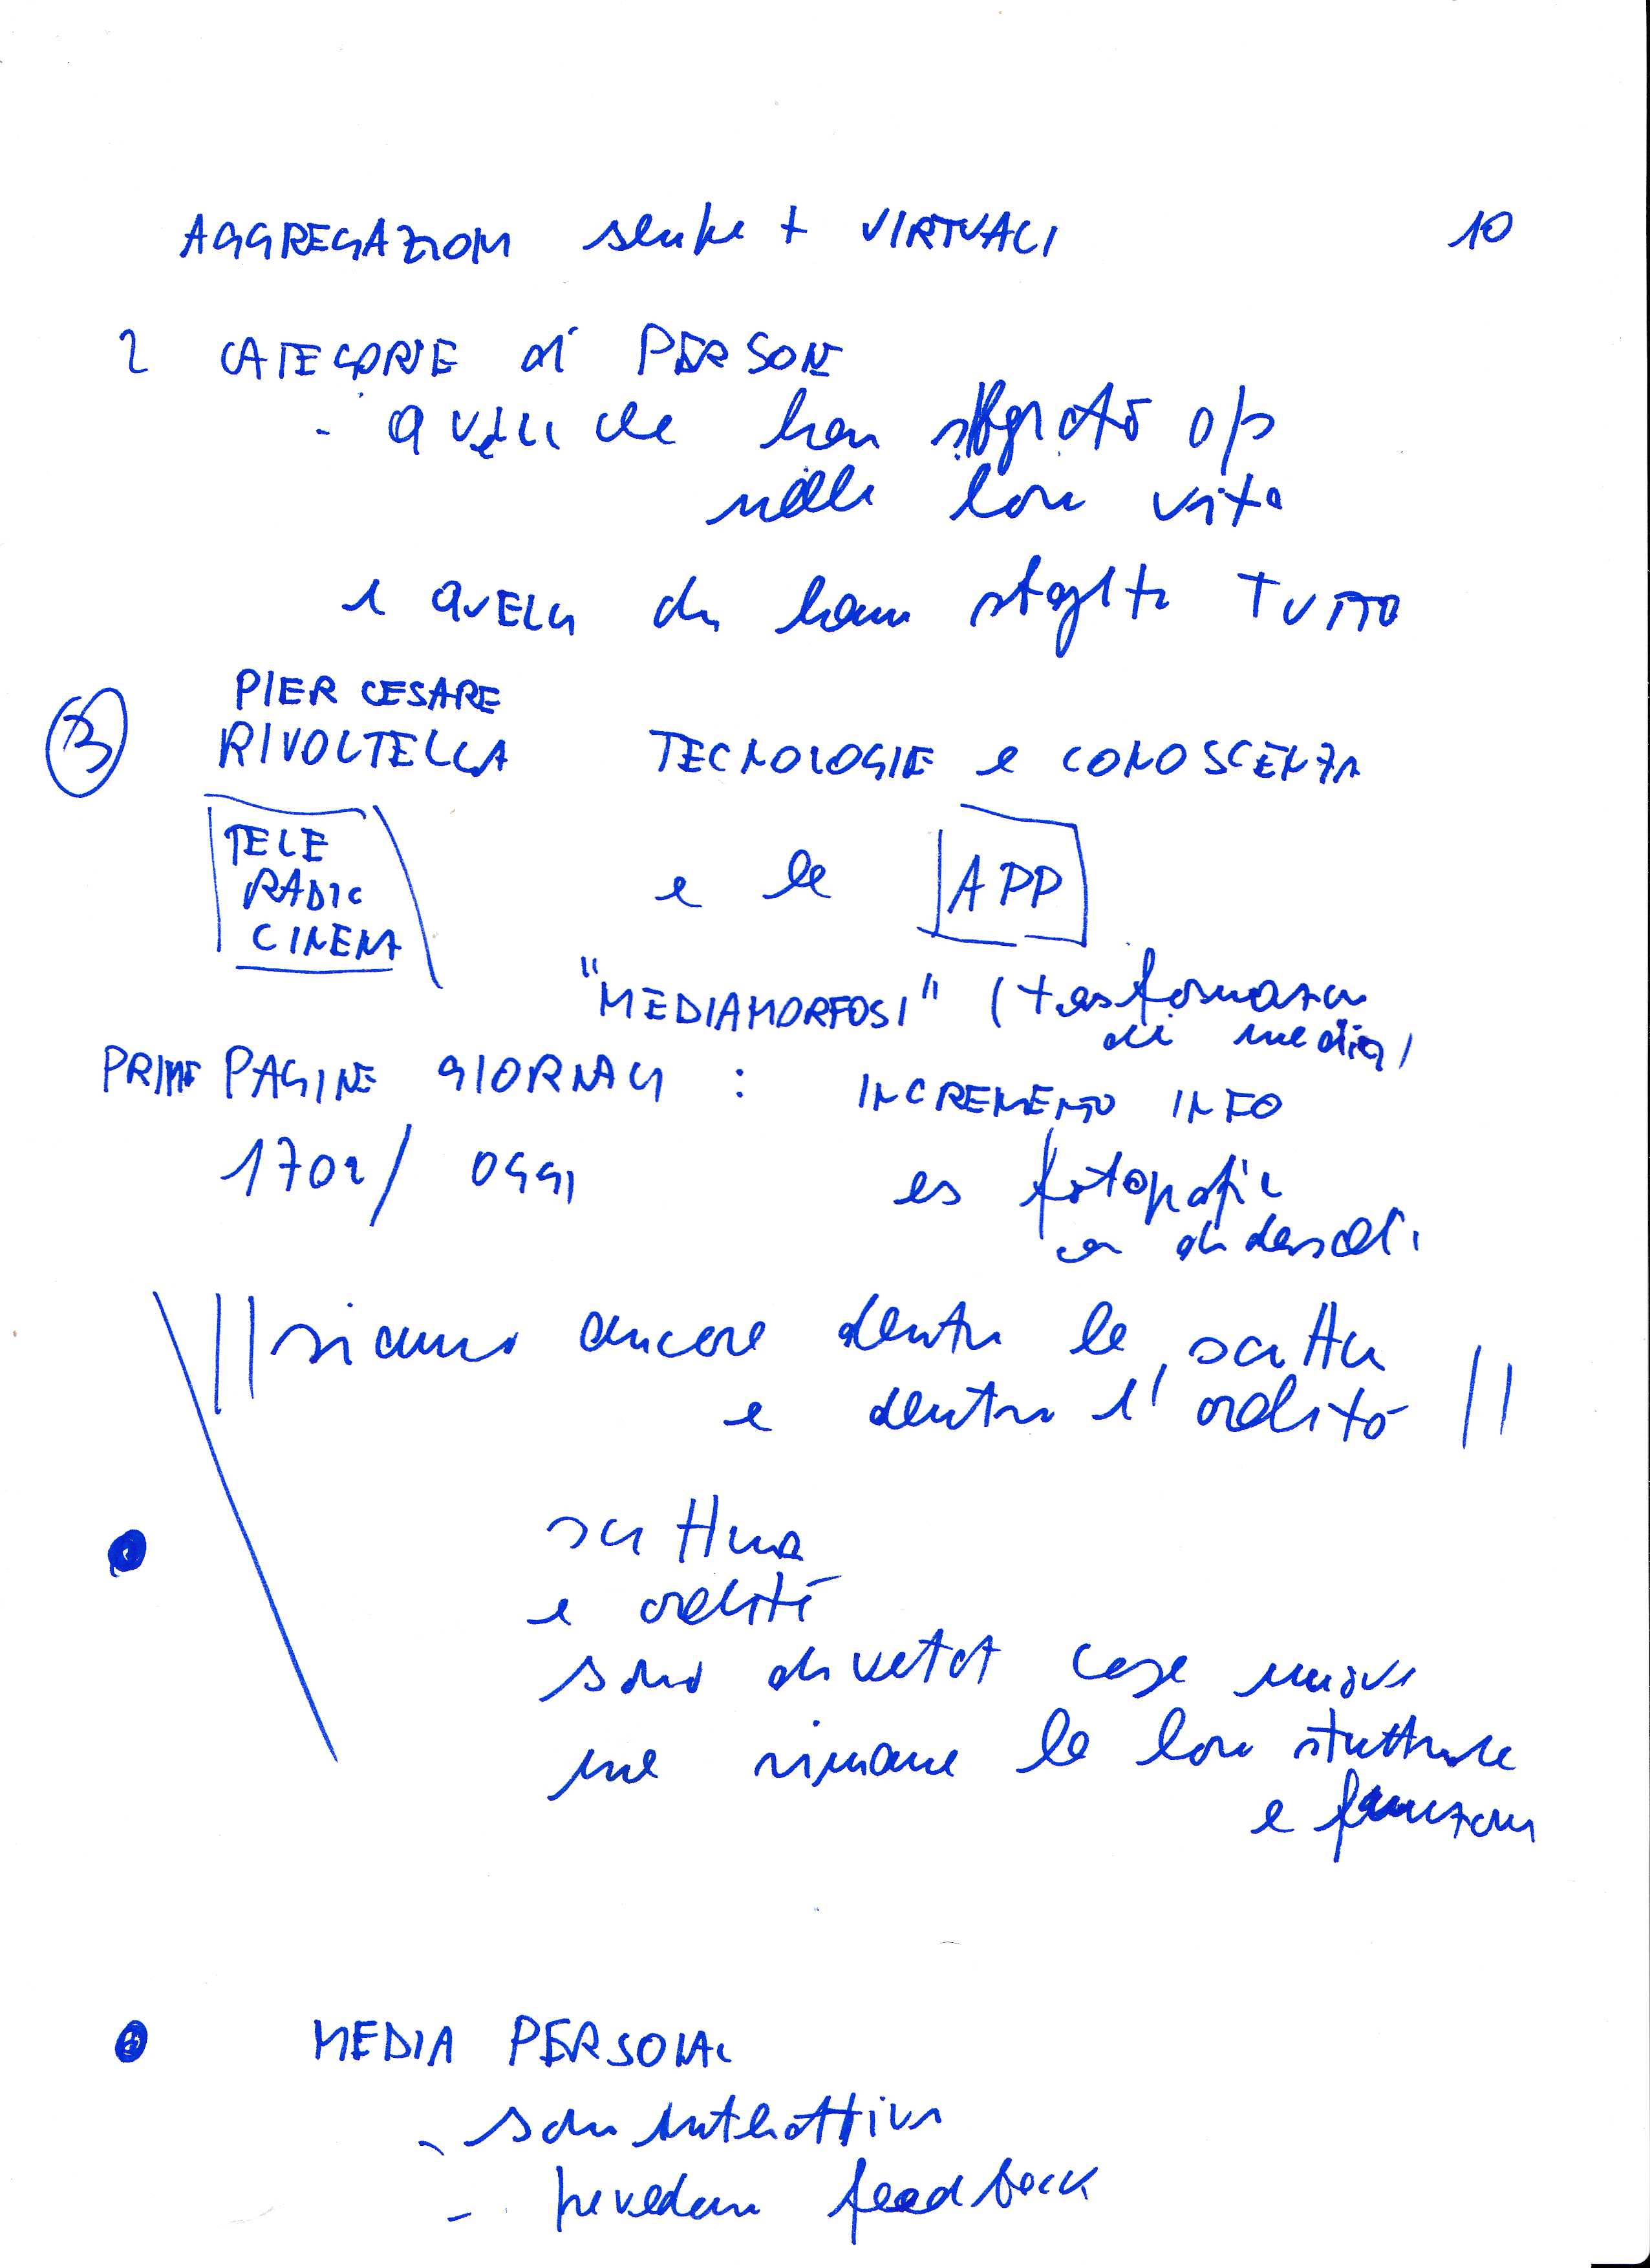 AGGREGAZIONI sempre + VIRTUALI 10
2 CATEGORIE di PERSONE
- QUELLI che han sbagliato
nella loro vita
e QUELLI che hanno sbagliato TUTTO
3 PIER CESARE
RIVOLTELLA TECNOLOGIE e CONOSCENZA
TELE
RADIO e le APP
CINEMA
"MEDIAMORFOSI" (trasformazione
dei media)
PRIME PAGINE GIORNALI : INCREMENTO INFO
1702/ OGGI es fotografie
con didascali
siamo ancora dentro la scrittu
e dentro l'oralità
scrittura
e oralità
sono diventat cose nuove
ma rimane le loro strutture
e funzioni
MEDIA PERSONAL
- sono interattivi
- prevedono feedback